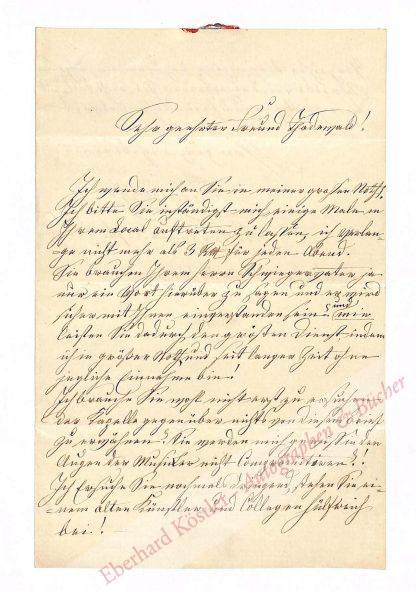 Sehr geehrter Freund Thodewald!
Ich wende mich an Sie in meiner großen Noth!
Ich bitte Sie inständigst mich einige Male in
Ihrem Local auftreten zu lassen, ich verlan-
ge nicht mehr als 3 für jeden Abend.
Sie brauchen Ihrem Herrn Schwiegervater ja
nur ein Wort hierüber zu sagen und er wird
sicher mit Ihnen einverstanden sein und mir
leisten Sie dadurch den größten Dienst indem
ich in größter Noth und seit langer Zeit ohne
jegliche Einnahme bin!
Ich brauche Sie wohl nicht erst zu ersuchen
der Capelle gegenüber nichts von diesem Brief
zu erwähnen. Sie werden mich gewiß in den
Augen der Musiker nicht Compromitiren!
Ich Ersuche Sie nochmals dringend, stehen Sie ei-
nem alten Künstler und Collegen hülfreich
bei!
Eberhard Köstler Autographen & Bücher